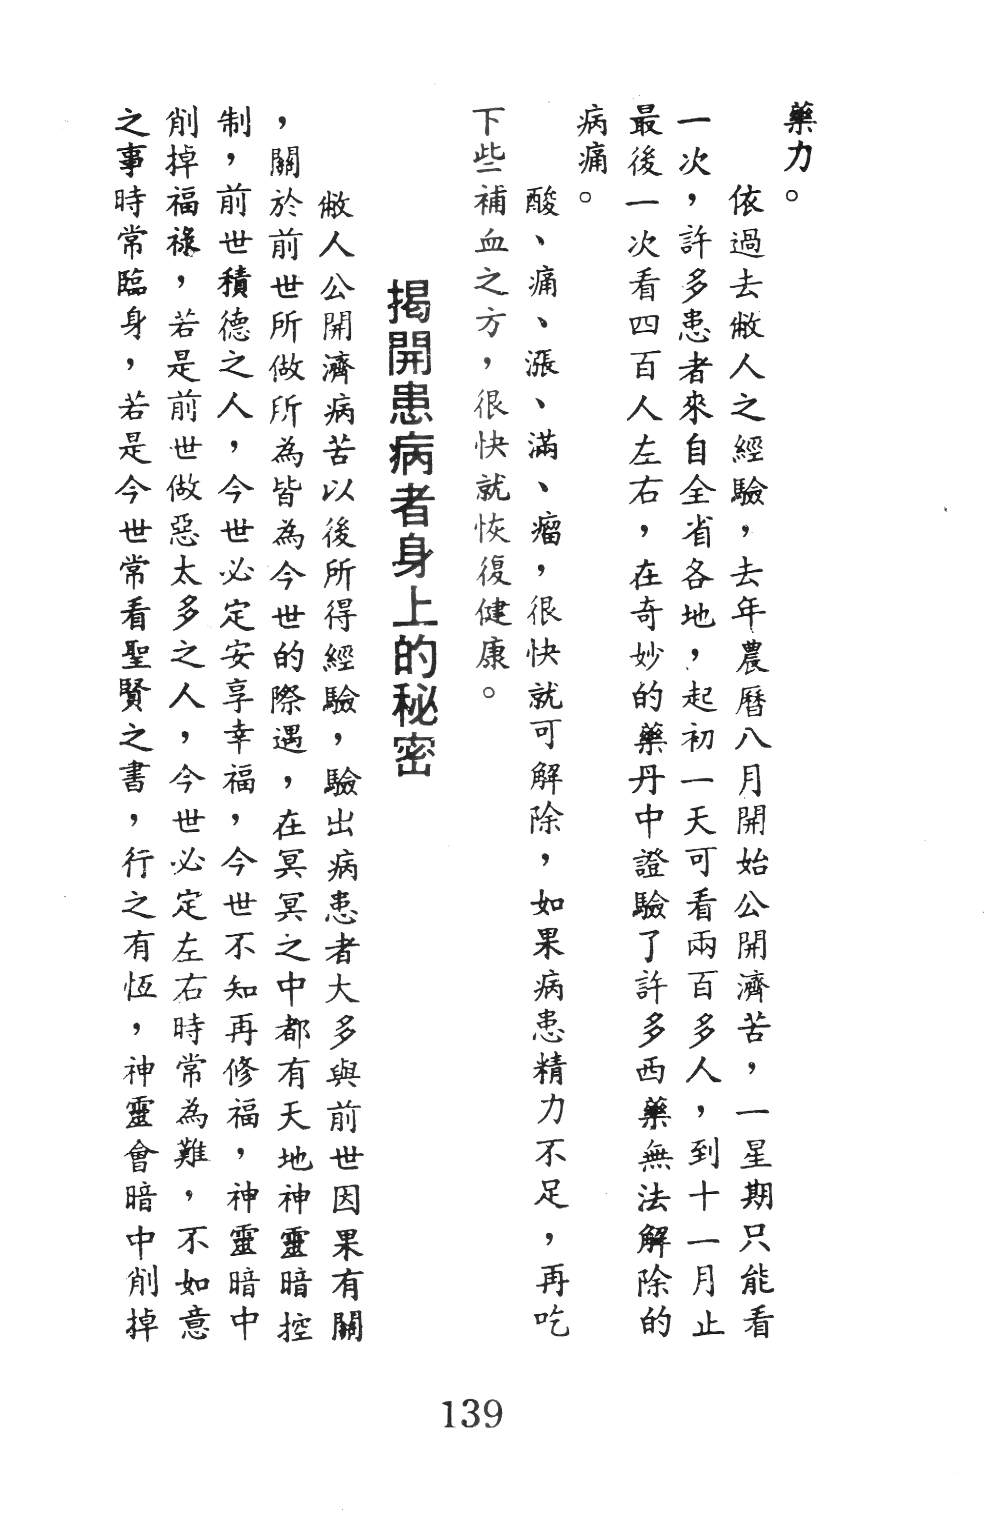 藥力。
依過去敝人之經驗，去年農曆八月開始公開濟苦，一星期只能看
一次，許多患者來自全省各地，起初一天可看兩百多人，到十一月止
最後一次看四百人左右，在奇妙的藥丹中證驗了許多西藥無法解除的
病痛。
酸、痛、漲、滿、瘤，很快就可解除，如果病患精力不足，再吃
下些補血之方，很快就恢復健康。
揭開患病者身上的秘密
敝人公開濟病苦以後所得經驗，驗出病患者大多與前世因果有關
，關於前世所做所為皆為今世的際遇，在冥冥之中都有天地神靈暗控
制，前世積德之人，今世必定安享幸福，今世不知再修福，神靈暗中
削掉福祿，若是前世做惡太多之人，今世必定左右時常為難，不如意
之事時常臨身，若是今世常看聖賢之書，行之有恆，神靈會暗中削掉
139